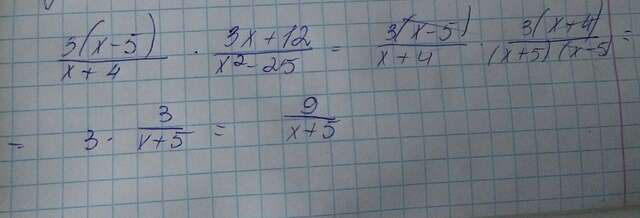 3(x-5)/(x+4) · (3x+12)/(x²-25) = 3(x-5)/(x+4) · 3(x+4)/((x+5)(x-5)) =
= 3 · 3/(x+5) = 9/(x+5)